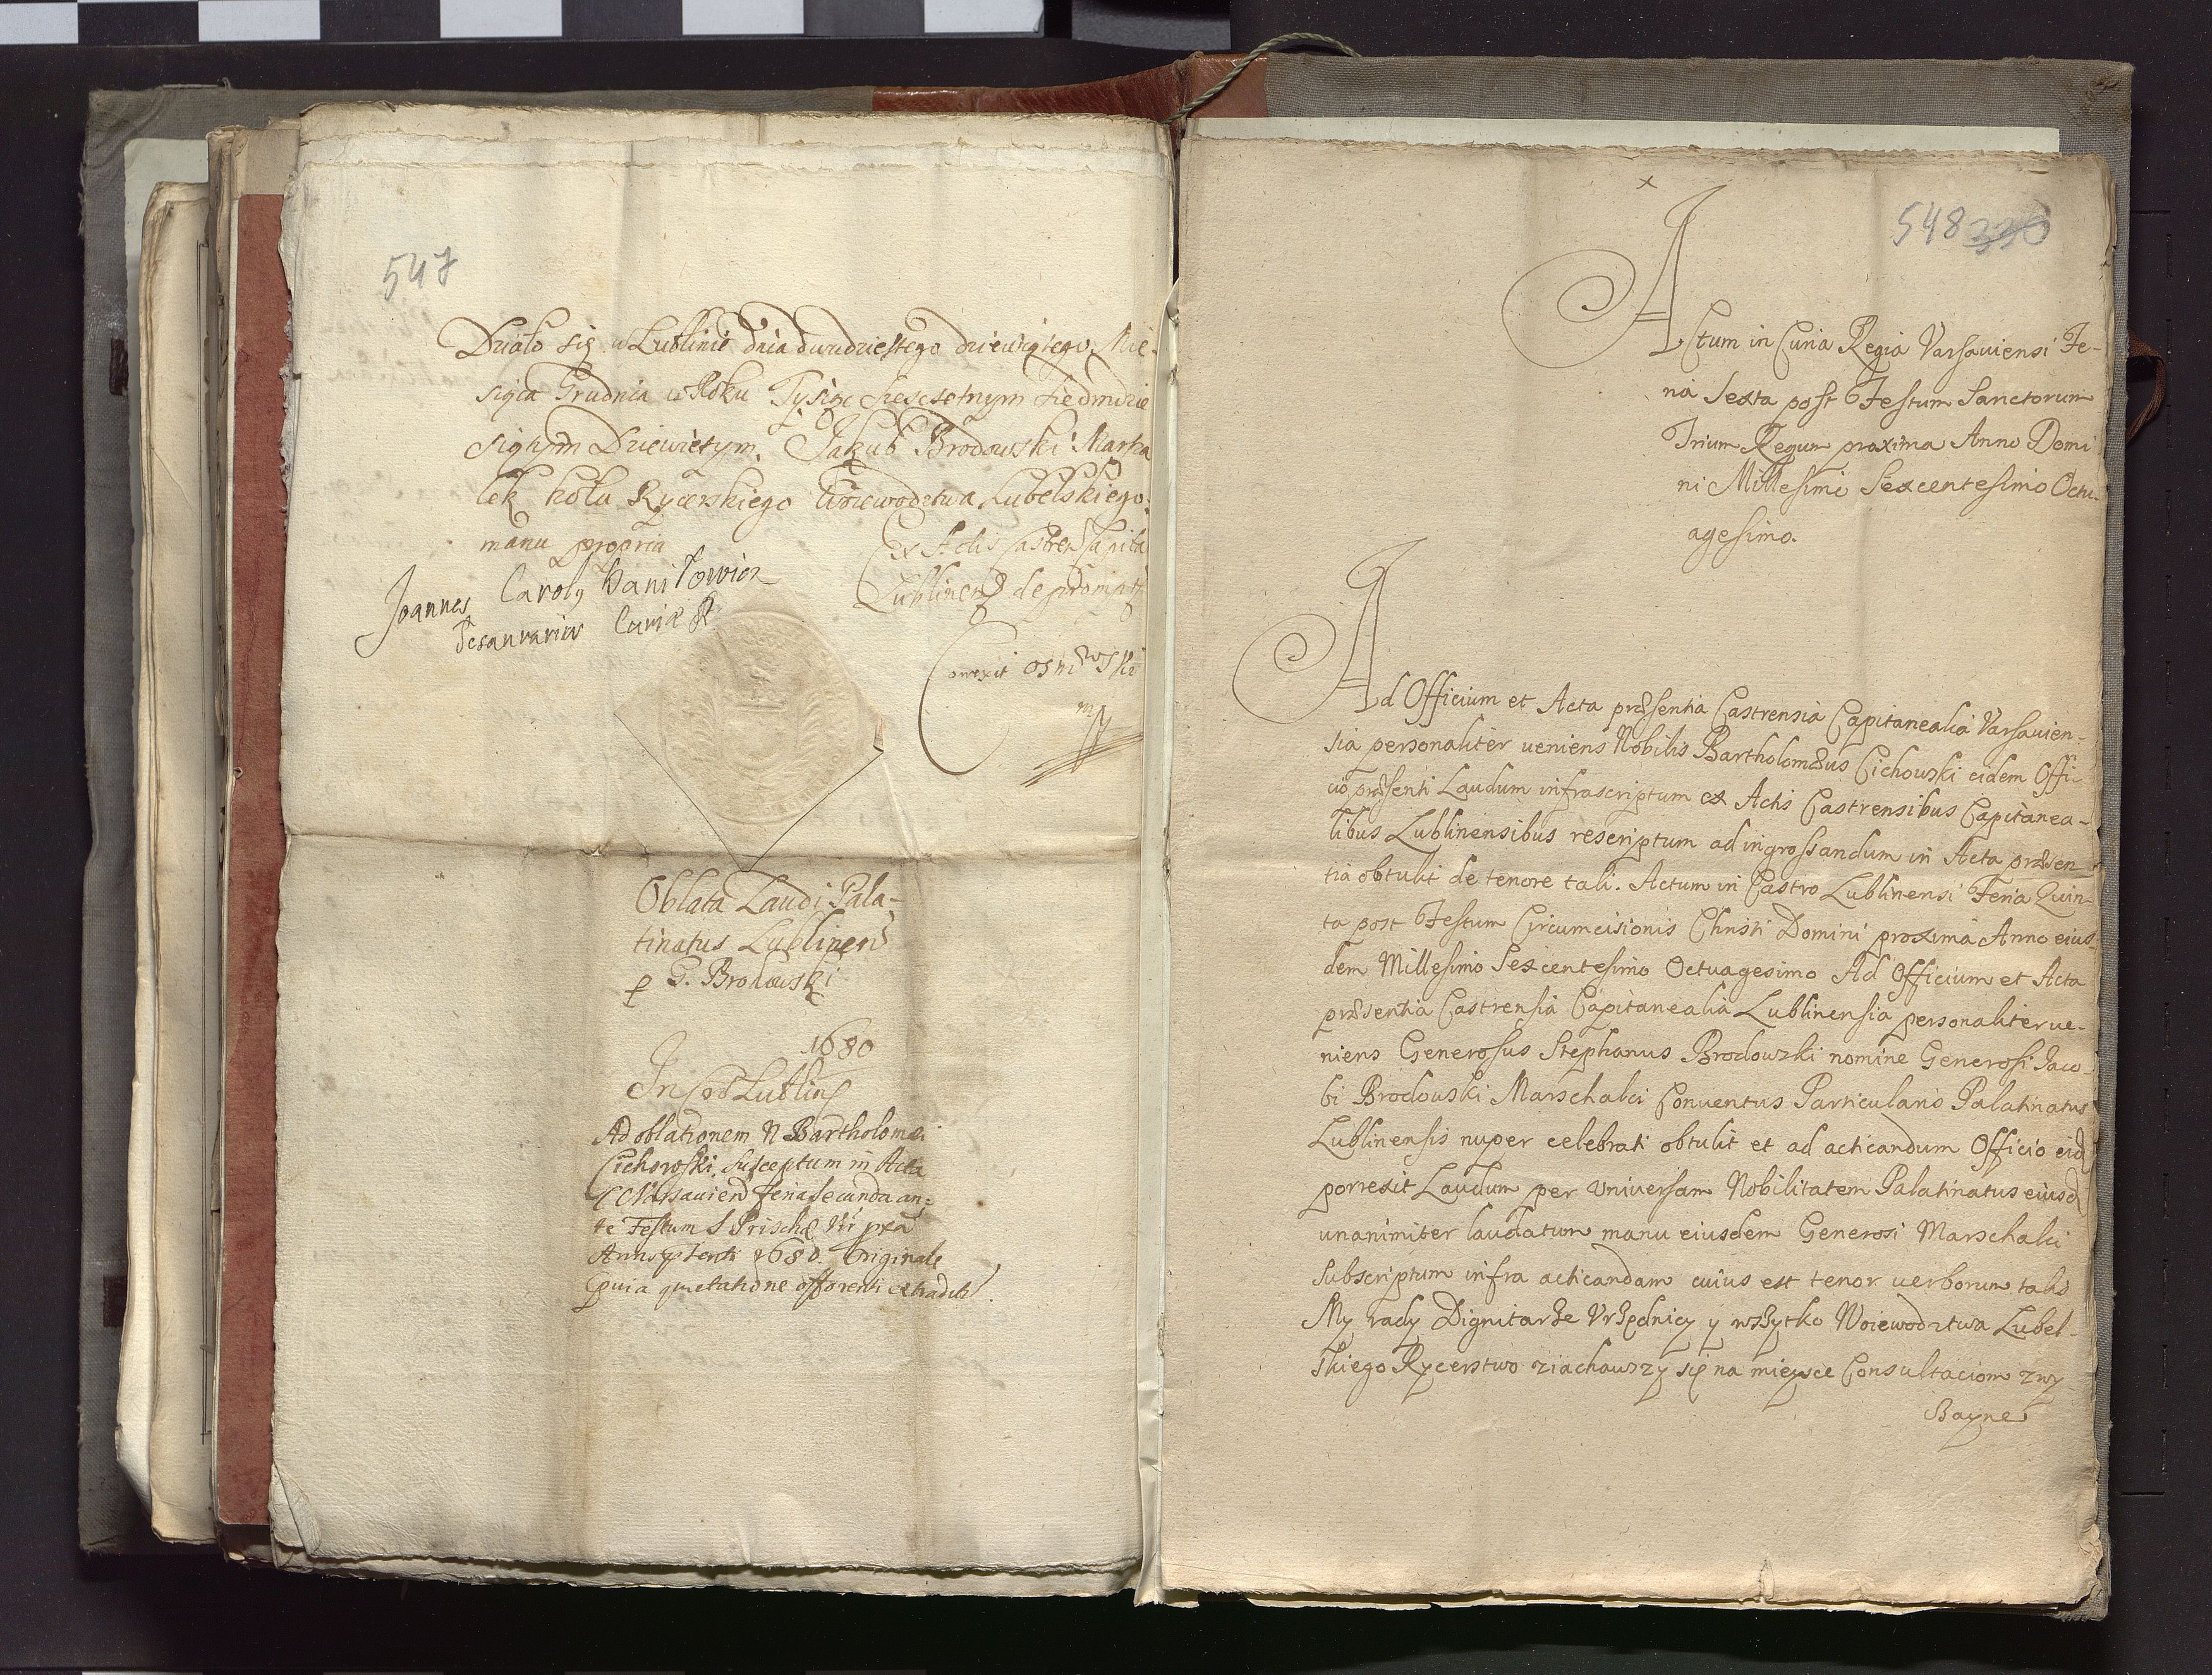 547
Działo się w Lublinie dnia dwudziestego dziewiątego Mie-
siąca Grudnia w Roku Tysiąc szescsetnym siedmdzie
siątym Dziewiętym. Jakub Brodowski Marsza
lek koła Rycerskiego Woiewodztwa Lubelskiego.
manu propria
Ex Actis Castren Capita
Lublinen depromptũ
Joannes Carolus Daniłowicz
Tesaurarius Curiæ R
Correxit
mp
Oblata Laudi Pala-
tinatus Lublinen
p G. Brodowski
1680
In Lublin
Ad oblationem N Bartholomæi
Cichowski susceptum in Acta
C Varsavien feria secunda an-
te Festum S Priscæ Vir pxa
Anno 1680. Originale
quia quietatione offerenti extradit.
548 330
x
Actum in Curia Regia Varsauiensi Fe-
ria Sexta post Festum Sanctorum
Trium Regum proxima Anno Domi
ni Millesimi Sexcentesimo Octu-
agesimo.
Ad Officium et Acta præsentia Castrensia Capitanealia Varsauien-
sia personaliter ueniens Nobilis Bartholomæus Cichowski eidem Offi-
cio præsenti Laudum infrascriptum ex Actis Castrensibus Capitanea-
libus Lublinensibus rescriptum ad ingrossandum in Acta præsen-
tia obtulit de tenore tali. Actum in Castro Lublinensi Feria Quin-
ta post Festum Circumcisionis Christi Domini proxima Anno eius-
dem Millesimo Sexcentesimo Octuagesimo Ad Officium et Acta
præsentia Castrensia Capitanealia Lublinensia personaliter ue-
niens Generosus Stephanus Brodowski nomine Generosi Jaco-
bi Brodowski Marschalci Conuentus Particularis Palatinatus
Lublinensis nuper celebrati obtulit et ad acticandum Officio eid
porrexit Laudum per Vniuersam Nobilitatem Palatinatus eiusd
unanimiter laudatum manu eiusdem Generosi Marschalci
Subscriptum infra acticandam cuius est tenor uerborum talis
My rady Dignitarze Vrzędnicy y wszytko Woiewodztwa Lubel-
skiego Rycerstwo ziachawszy się na mieysce Consultaciom zwy
czayne